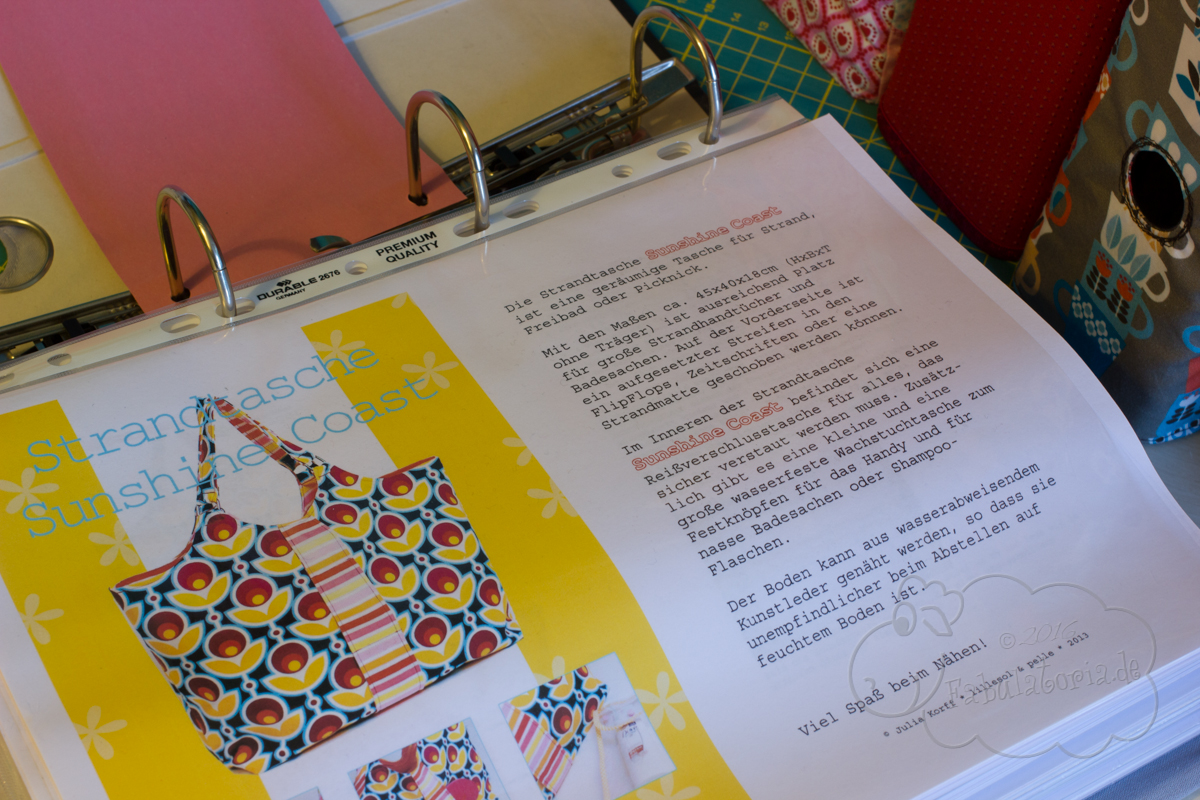 DURABLE 2676
GERMANY
PREMIUM
QUALITY
Strandtasche
Sunshine Coast
Die Strandtasche Sunshine Coast
ist eine geräumige Tasche für Strand,
Freibad oder Picknick.
Mit den Maßen ca. 45x40x18cm (HxBxT
ohne Träger) ist ausreichend Platz
für große Strandhandtücher und
Badesachen. Auf der Vorderseite ist
ein aufgesetzter Streifen in den
FlipFlops, Zeitschriften oder eine
Strandmatte geschoben werden können.
Im Inneren der Strandtasche
Sunshine Coast befindet sich eine
Reißverschlusstasche für alles, das
sicher verstaut werden muss. Zusätz-
lich gibt es eine kleine und eine
große wasserfeste Wachstuchtasche zum
Festknöpfen für das Handy und für
nasse Badesachen oder Shampoo-
Flaschen.
Der Boden kann aus wasserabweisendem
Kunstleder genäht werden, so dass sie
unempfindlicher beim Abstellen auf
feuchtem Boden ist.
Viel Spaß beim Nähen!
© Julia Korff • lillesol & pelle • 2013
© 2016
Fabulatoria.de